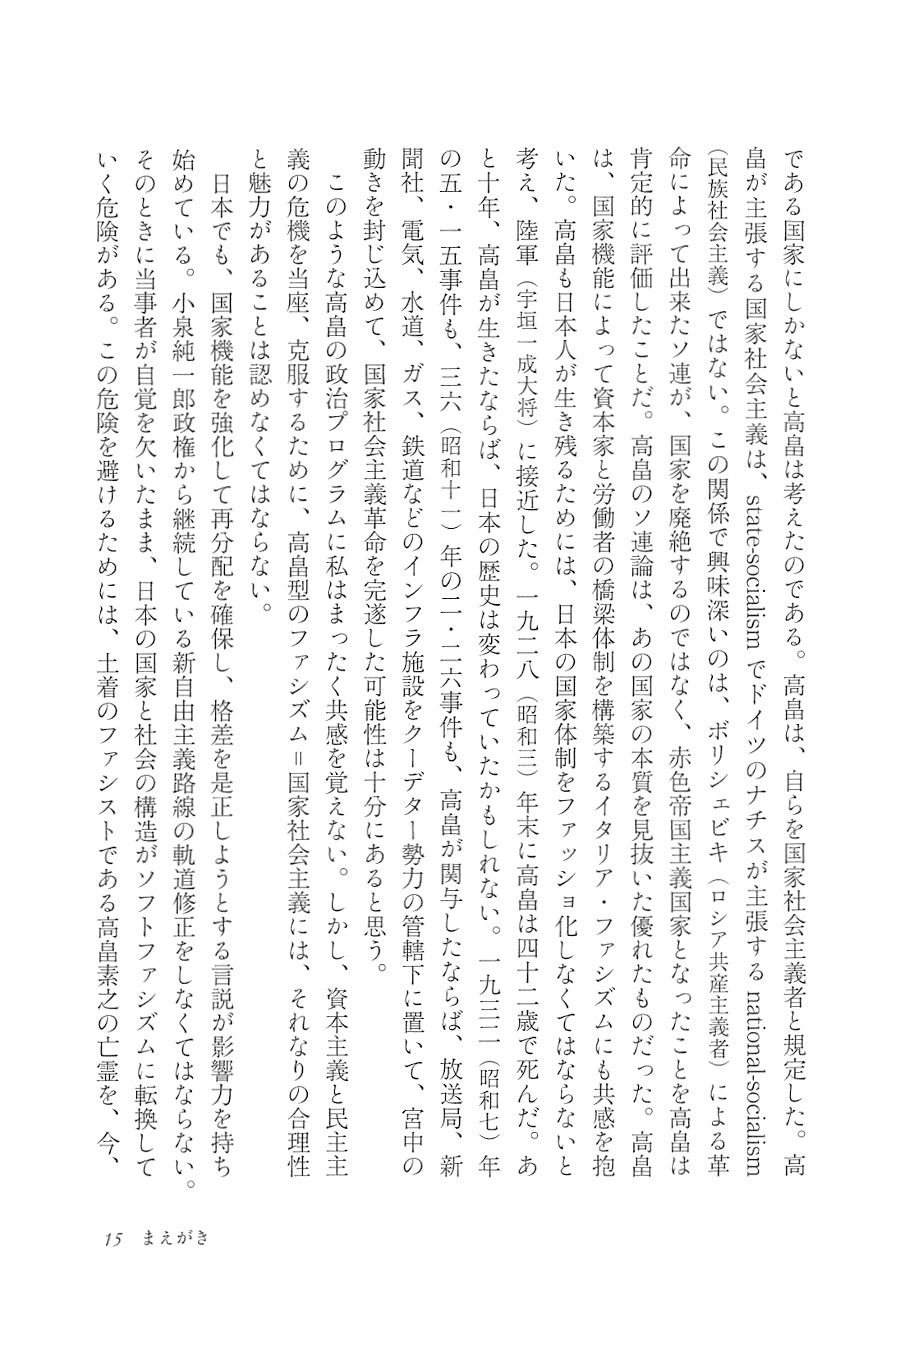 である国家にしかないと高畠は考えたのである。高畠は、自らを国家社会主義者と規定した。高
畠が主張する国家社会主義は、state-socialism でドイツのナチスが主張する national-socialism
（民族社会主義）ではない。この関係で興味深いのは、ボリシェビキ（ロシア共産主義者）による革
命によって出来たソ連が、国家を廃絶するのではなく、赤色帝国主義国家となったことを高畠は
肯定的に評価したことだ。高畠のソ連論は、あの国家の本質を見抜いた優れたものだった。高畠
は、国家機能によって資本家と労働者の橋梁体制を構築するイタリア・ファシズムにも共感を抱
いた。高畠も日本人が生き残るためには、日本の国家体制をファッショ化しなくてはならないと
考え、陸軍（宇垣一成大将）に接近した。一九二八（昭和三）年末に高畠は四十二歳で死んだ。あ
と十年、高畠が生きたならば、日本の歴史は変わっていたかもしれない。一九三二（昭和七）年
の五・一五事件も、三六（昭和十一）年の二・二六事件も、高畠が関与したならば、放送局、新
聞社、電気、水道、ガス、鉄道などのインフラ施設をクーデター勢力の管轄下に置いて、宮中の
動きを封じ込めて、国家社会主義革命を完遂した可能性は十分にあると思う。
このような高畠の政治プログラムに私はまったく共感を覚えない。しかし、資本主義と民主主
義の危機を当座、克服するために、高畠型のファシズム＝国家社会主義には、それなりの合理性
と魅力があることは認めなくてはならない。
日本でも、国家機能を強化して再分配を確保し、格差を是正しようとする言説が影響力を持ち
始めている。小泉純一郎政権から継続している新自由主義路線の軌道修正をしなくてはならない。
そのときに当事者が自覚を欠いたまま、日本の国家と社会の構造がソフトファシズムに転換して
いく危険がある。この危険を避けるためには、土着のファシストである高畠素之の亡霊を、今、
15 まえがき